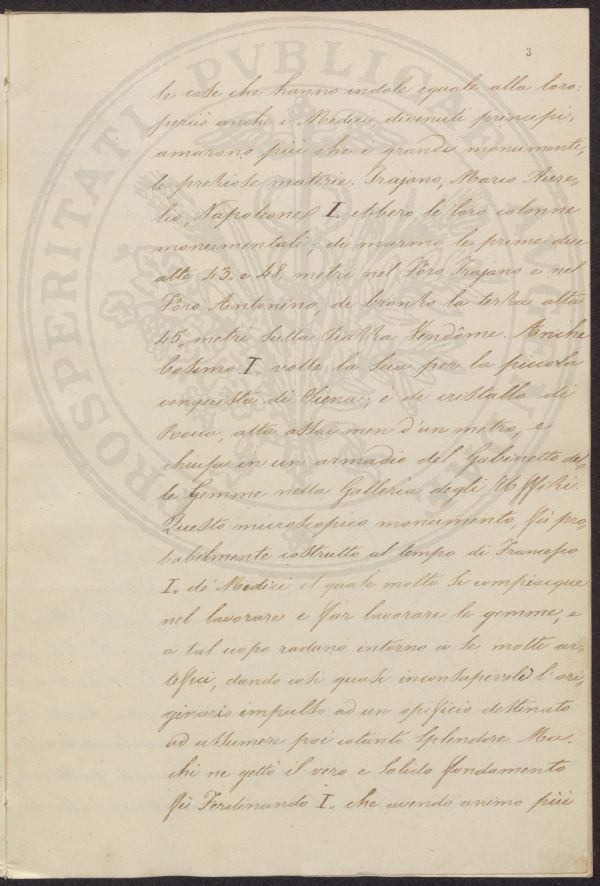 3
le cose che hanno indole eguale alla loro:
perciò anche i Medici, divenuti principi,
amarono più che i grandi monumenti,
le preziose materie. Trajano, Marco Aure-
lio, Napoleone I. ebbero le loro colonne
monumentali; di marmo le prime due
alte 43. e 48. metri nel Fôro Trajano e nel
Fôro Antonino, di bronzo la terza alta
45. metri sulla Piazza Vendôme. Anche
Cosimo I. volle la sua per la piccola
conquista di Siena; e di cristallo di
Rocca, alta assai men d'un metro, e
chiusa in un armadio del Gabinetto del-
le Gemme nella Galleria degli Uffizi.
Questo microscopico monumento, fù pro-
babilmente costrutto al tempo di Francesco
I. de' Medici, il quale molto si compiacque
nel lavorare e far lavorare le gemme, e
a tal uopo radunò intorno a se molti ar-
tefici, dando così quasi inconsapevole l'ori-
ginario impulso ad un opificio destinato
ad assumere poi cotanto splendore. Ma
chi ne gettò il vero e solido fondamento
fù Ferdinando I. che avendo animo più
PROSPERITATI PVBLICAE AVG